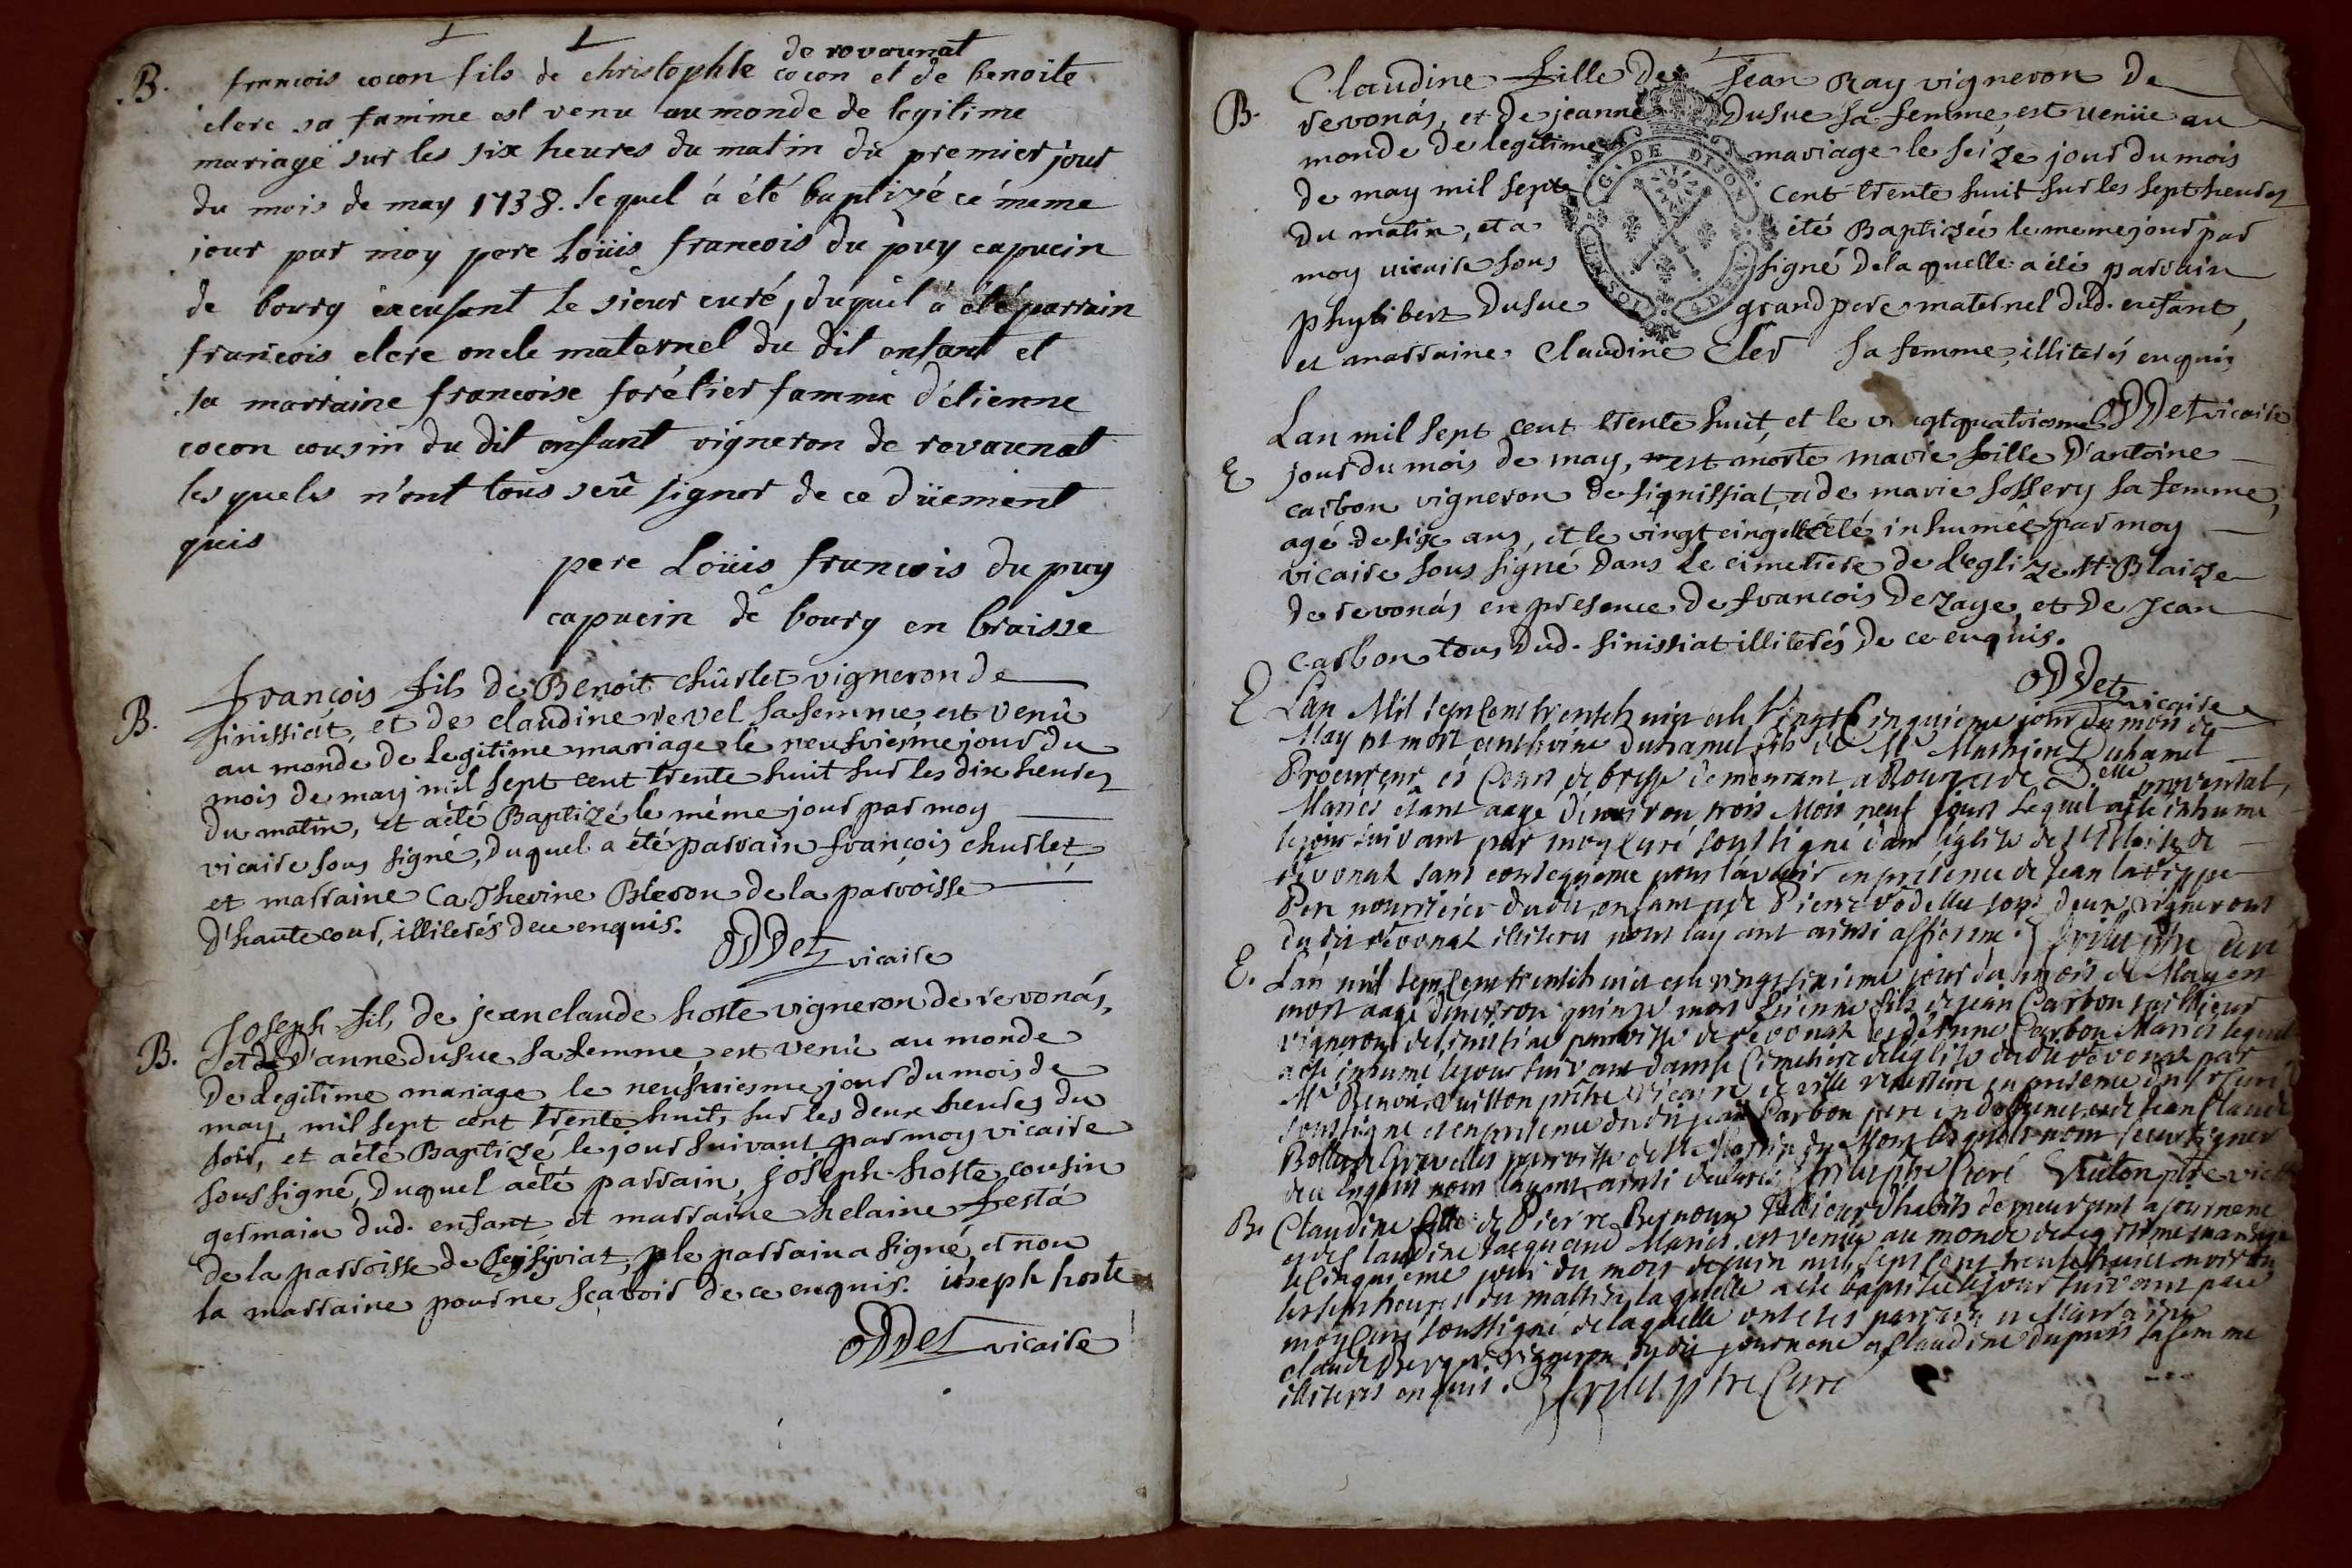 B. de rovounat
francois cocon fils de christophle cocon et de benoite
clerc sa famme est venu au monde de legitime
mariage sur les six heures du matin du premier jour
du mois de may 1738. lequel à été baptizé cé meme
jour par moy pere Loüis francois du puy capucin
de bourg excusent le sieur curé, duquel à été parrain
francois clerc oncle maternel du dit enfant et
sa marraine francoise forétier famme d'étienne
cocon cousin du dit enfant vigneron de revounat
lesquels n'ont tous seü signer de ce düement
quis
pere Loüis francois du puy
capucin de bourg en braisse
B. François fils de Benoit chûrlet vigneron de
finissiat, et de claudine revel sa femme est venû
au monde de legitime mariage le neufviesme jour du
mois de may mil sept cent trente huit sur les dix heures
du matin, et a été Baptizé le même jour par moy
vicaire sous signé, duquel a été parrain françois churlet
et marraine Catherine Bleron de la parroisse
d'hautecour, illiterés de ce enquis.
ODDet vicaire
B. Joseph fils de jean claude hoste vigneron de revonás,
et de d'anne dusue sa femme est venû au monde
de legitime mariage le neufviesme jour du mois de
may mil sept cent trente huit, sur les deux heures du
soir, et a été Baptizé le jour suivant par moy vicaire
sous signé, duquel a été parrain, joseph hoste cousin
germain dud. enfant et marraine helaine festa
de la parroisse de Ceysiriat, le parrain a signé, et non
la marraine pour ne sçavoir de ce enquis. ioseph hoste
ODDet vicaire
B. Claudine fille de Jean Ray vigneron de
revonás, et de jeanne Dusue sa femme, est venüe au
monde de legitime mariage le seize jour du mois
de may mil sept cent trente huit sur les sept heures
du matin, et a été Baptizée le meme jour par
moy vicaire sous signé de laquelle a été parrain
phylibert Dusue grand pere maternel dud. enfant,
et marraine Claudine Cler sa femme, illiterés enquis
G. DE DIJON
ODDet vicaire
E Lan mil sept cent trente huit, et le vingt quatriesme
jour du mois de may, est morte marie fille d'antoine
carbon vigneron de signissiat, et de marie sossery sa femme,
agé de six ans, et le vingt cinq a été inhumée par moy
vicaire sous signé dans le cimetiere de l'eglize st Blaize
de revonás en presence de francois Dezaye, et de Jean
Carbon tous dud. sinissiat illiterés de ce enquis.
ODDet vicaire
E Lan Mil sept cent trente huit et le vingt Cinquieme jour du mois de
May est mort antherine duhamel fils de Mr Mathieu Duhamel
Procureur és Cours de bresse demeurant a Bourg et de Delle provental,
Mariés étant aagé d'environ trois Mois neuf jours Lequel a été inhumé
le jour suivant par moy Curé soussigné dans l'eglise de st Blaise de
révonat sans consequence pour l'avenir en présence de Jean
Pere nourricier dudit enfant et de Pierre tous deux vignerons
du dit révonat illiterés pour l'ayant ainsi affirmé. ptre curé
E. Lan mil sept cent trente huit et le vingt sixieme jour du mois de May est
mort aagé d'environ quinze mois Etienne fils de jean Carbon
vigneron de parroisse de révonat et d'anne Carbon Mariés lequel
a été inhumé le jour suivant dans le Cimetiere de l'eglise dudit révonat par
Mr Benoit Vuitton prêtre Vicaire en presence du curé
soussigné et en presence dudit jean Carbon pere et de Jean Claude
parroisse de lesquels n'ont sceu signer
de ce enquis ainsi declaré. ptre Curé Vuiton ptre vic
B. Claudine fille de Pierre Bernoux Tallieur d'habits demeurant a journene
et de Claudine Jacquand Mariés est venue au monde de legitime mariage
le Cinquieme jour du mois de juin mil sept cent trente huit environ
les sept heures du mattin, laquelle a été baptisée le jour suivant par
moy Curé soussigné de laquelle ont étés parrain et Marraine
claude Berger vigneron dudit journene et Claudine Dupuis sa femme
illiterés enquis. ptre Curé